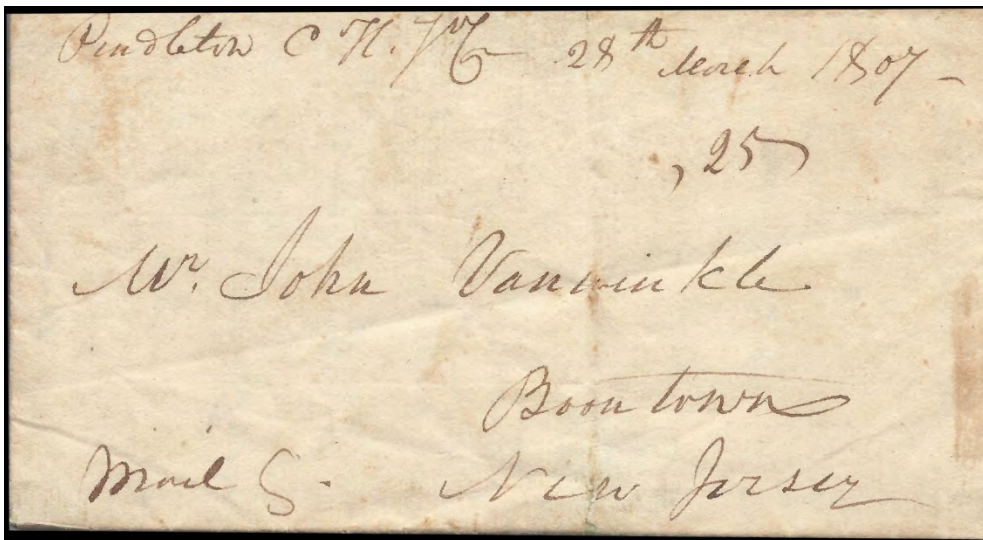 Pendleton C H. 28th March 1807 -
, 25
Mr. John Vanwinkle
Boontown
Mail
New Jersey